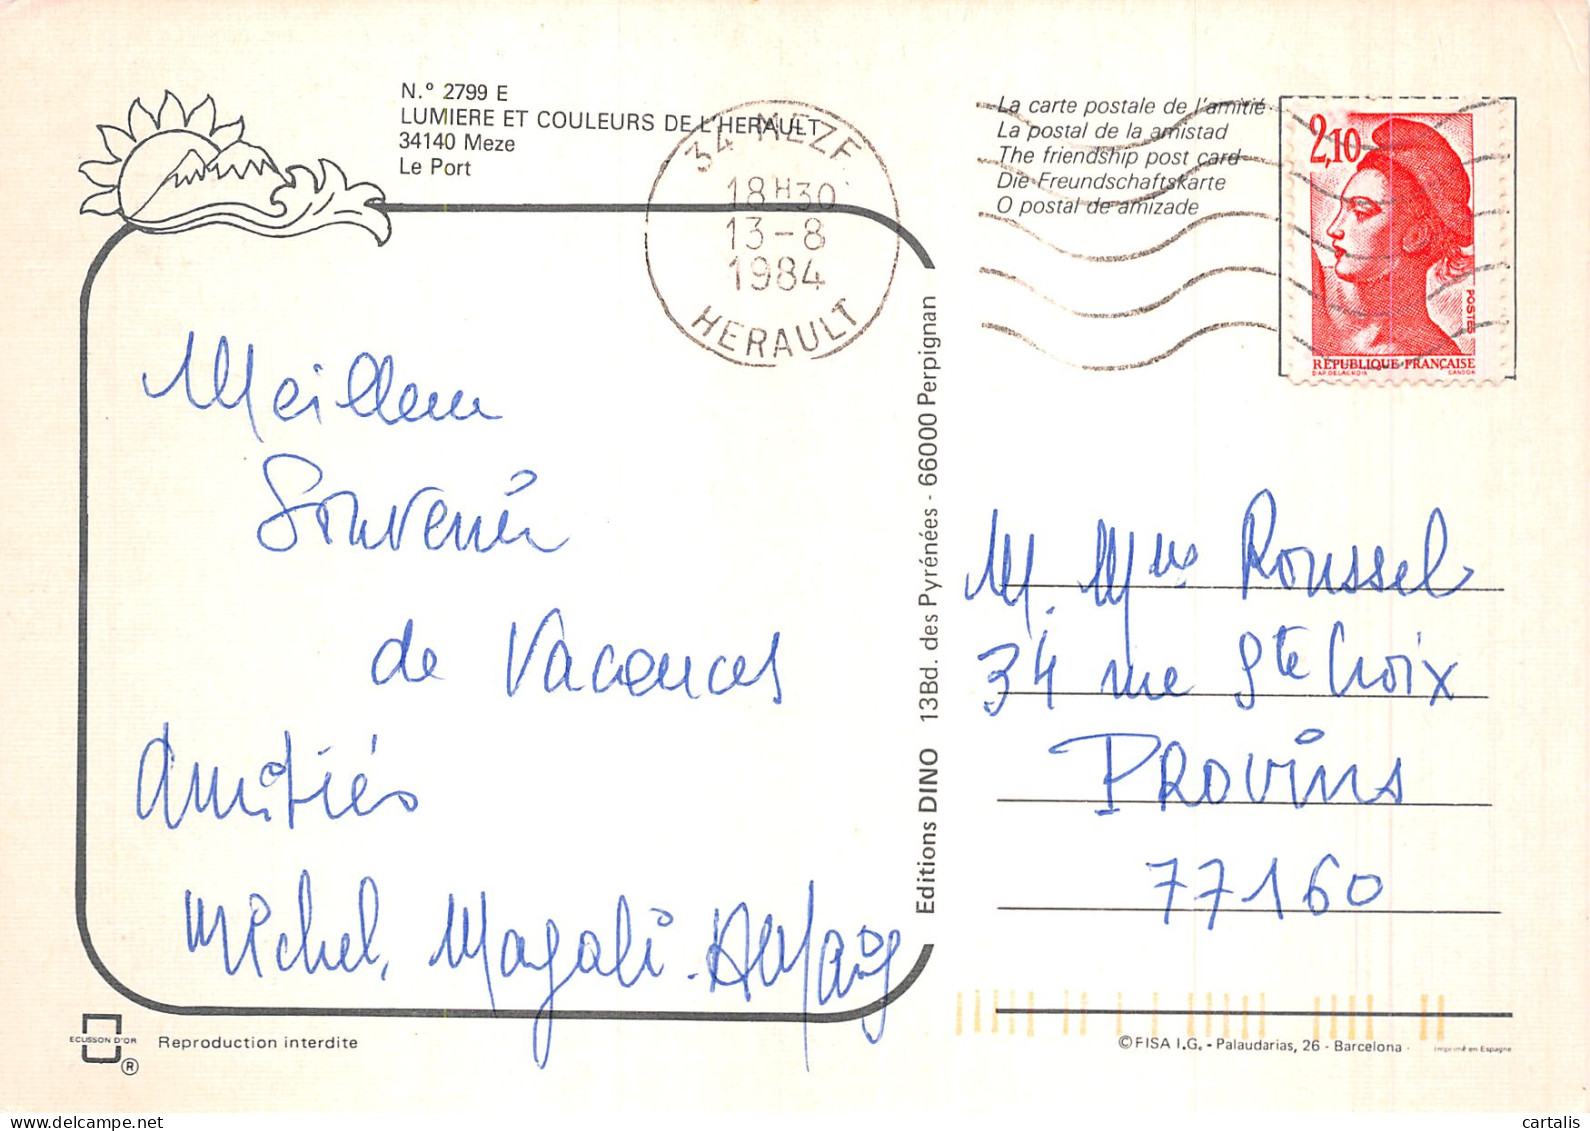 N.º 2799 E
LUMIERE ET COULEURS DE L'HERAULT
34140 Meze
Le Port
34 MEZE
18H30
13-8
1984
HERAULT
La carte postale de l'amitié
La postal de la amistad
The friendship post card
Die Freundschaftskarte
O postal de amizade
2,10
POSTES
RÉPUBLIQUE FRANÇAISE
D'AP. DELACROIX GANDON
Meilleur
Souvenir
de Vacances
Amitiés
Michel, Magali
Editions DINO 13Bd. des Pyrénées - 66000 Perpignan
M. Mme Roussel
34 rue Ste Croix
PROVINS
77160
ECUSSON D'OR
®
Reproduction interdite
© FISA I.G. - Palaudarias, 26 - Barcelona - Imprimé en Espagne
cartalis